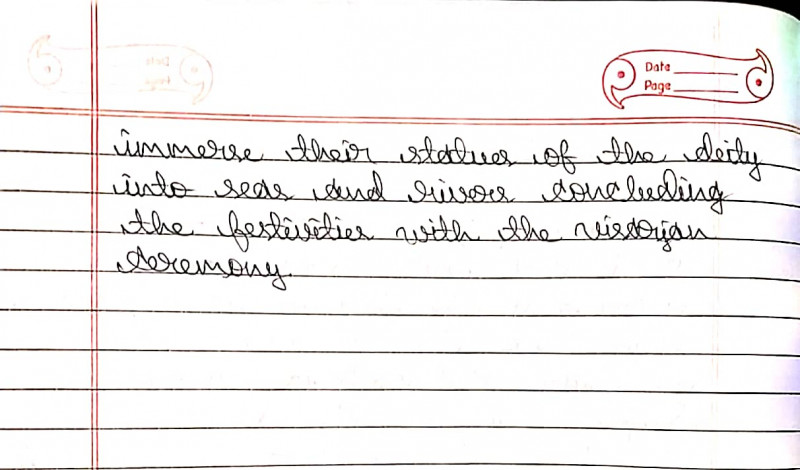 Date
Page
immerse their statues of the deity
into seas and rivers concluding
the festivities with the visorjan
ceremony.